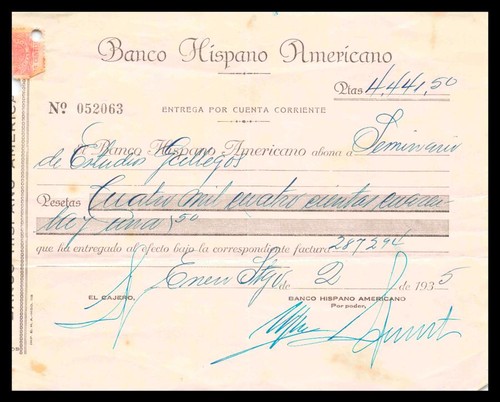 Banco Hispano Americano
Ptas 4.441,50
Nº 052063
ENTREGA POR CUENTA CORRIENTE
El Banco Hispano Americano abona a Seminario
de Estudios Gallegos
Pesetas Cuatro mil cuatro cientas cuaren
ta y una, 50
que ha entregado al efecto bajo la correspondiente factura 287294
de 2 de 1935
EL CAJERO,
BANCO HISPANO AMERICANO
Por poder,